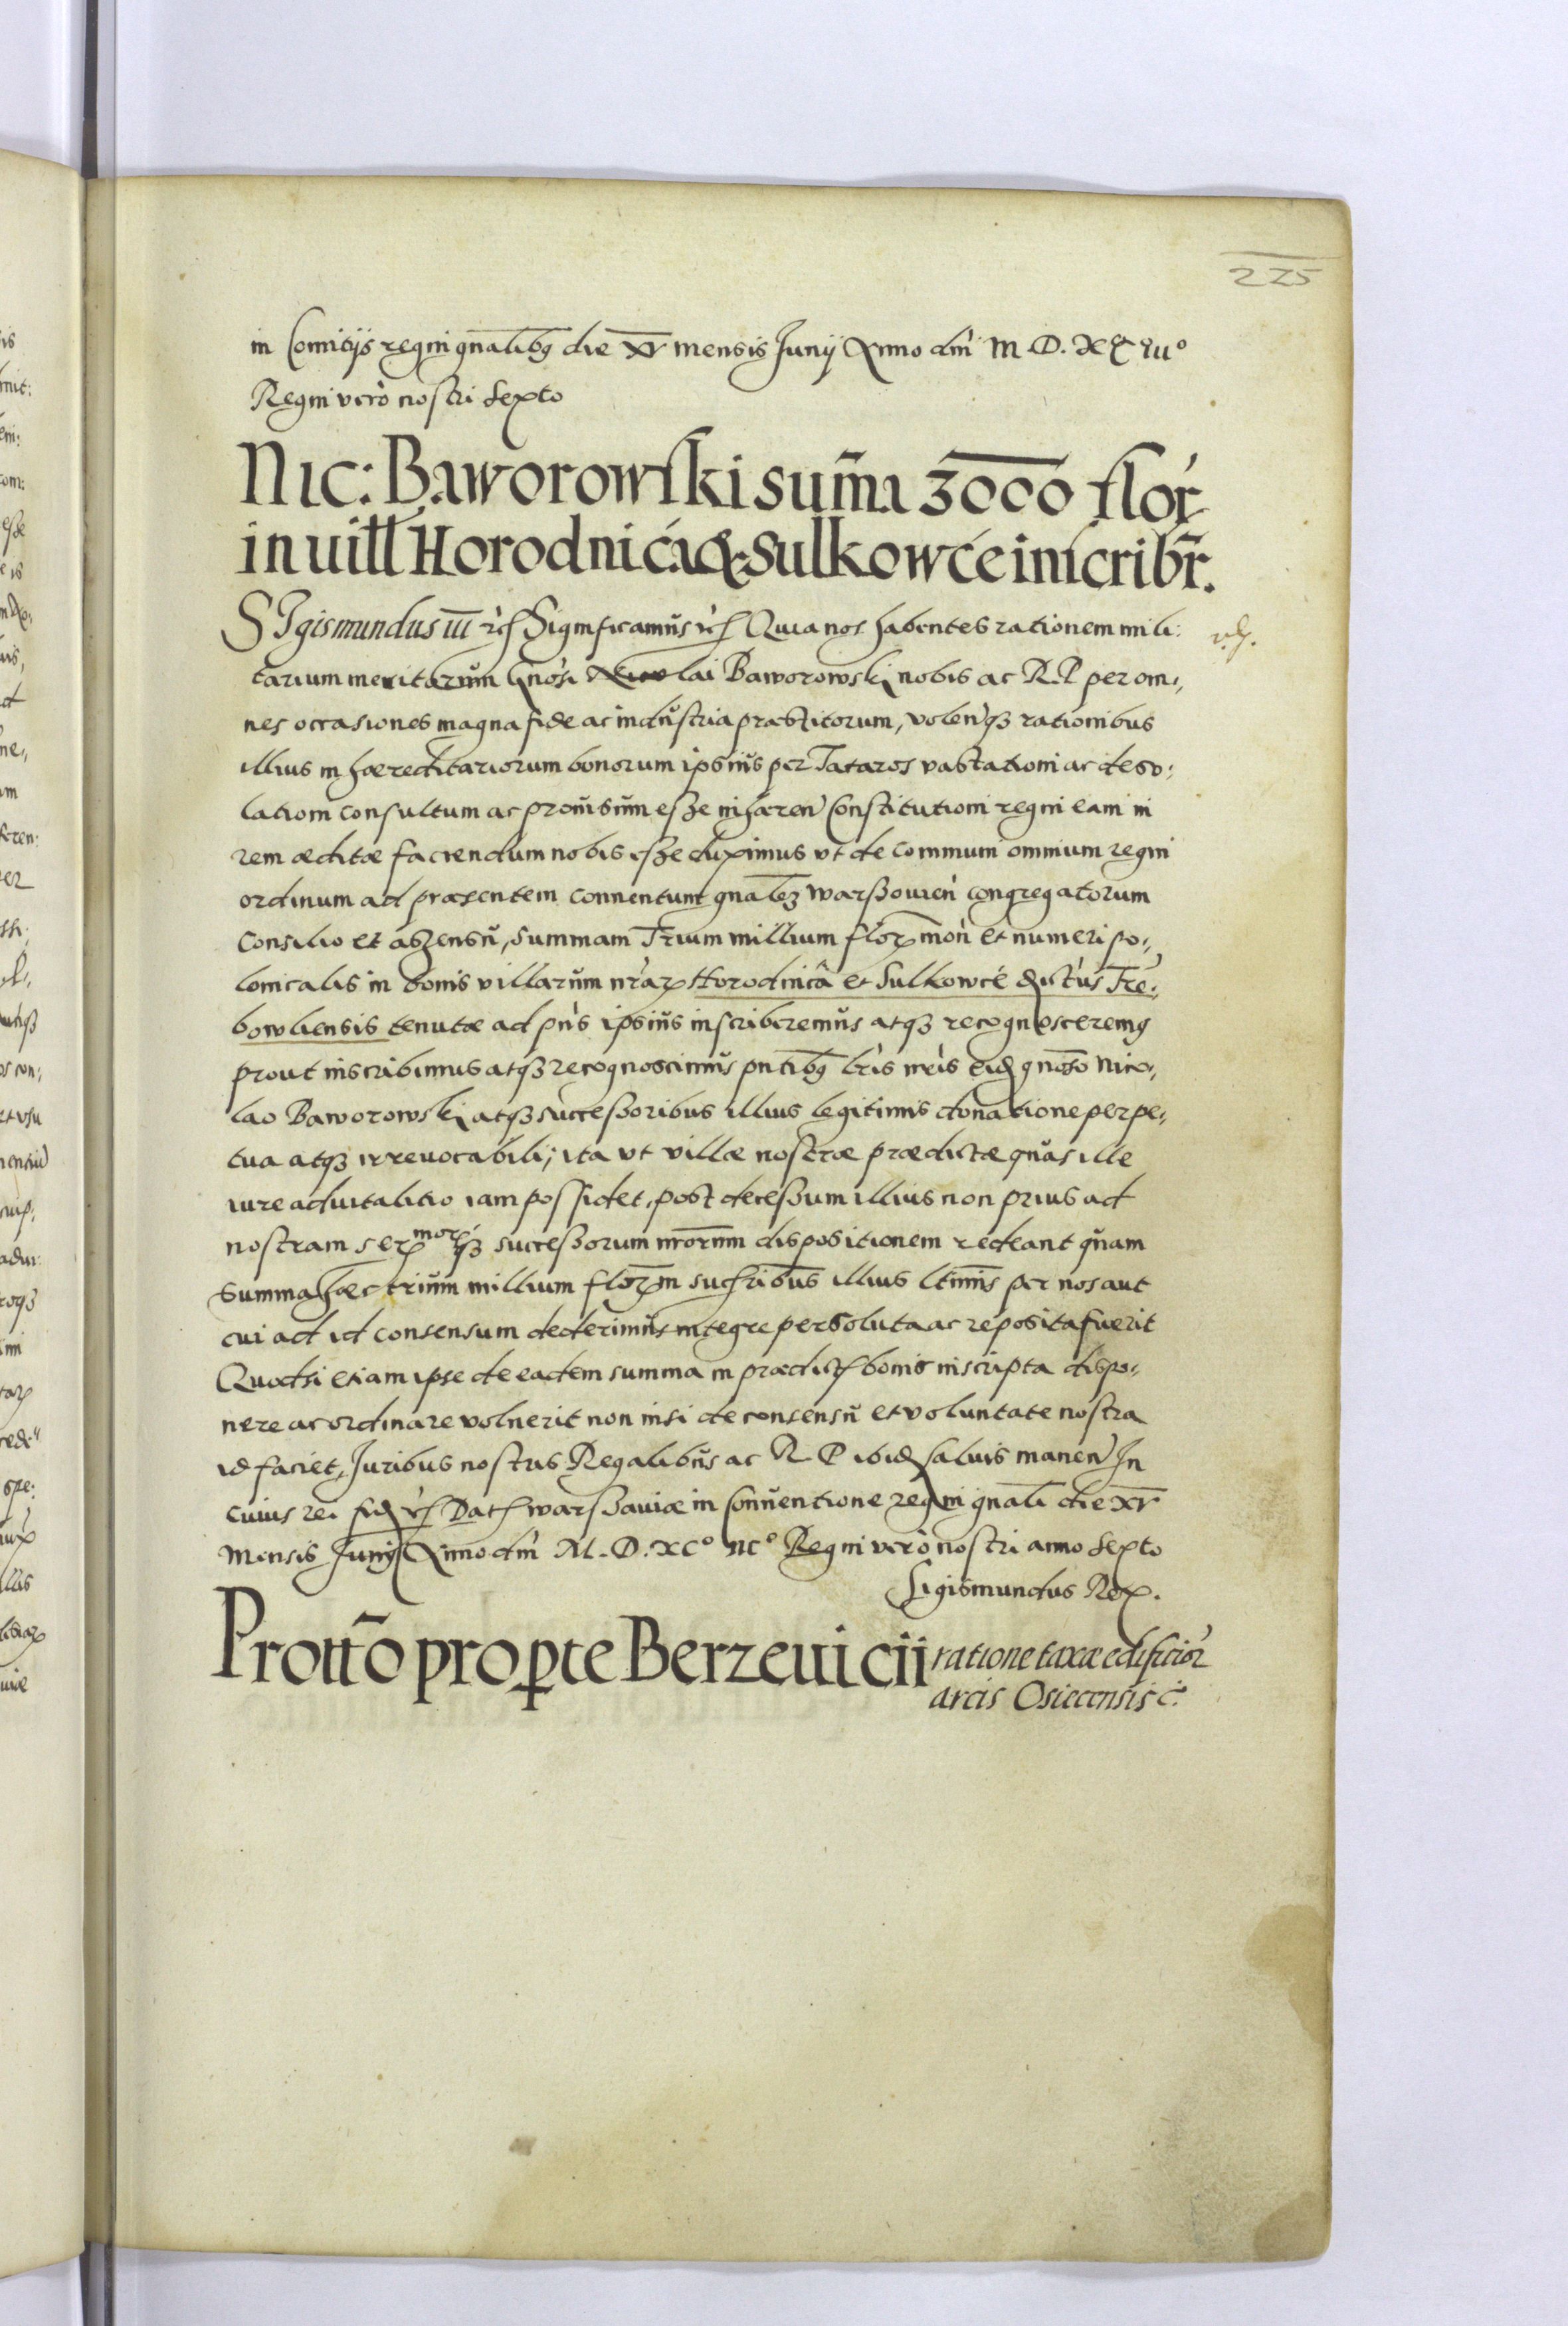 225
in Comitijs regni gn̄alibꝫ die xv mensis Junij Anno dn̄i M. D. XC
Regni vero nostri Sexto
Nic: Baworowski sum̄a 3000 flor
in vill Horodnica & Sulkowce inscribr̄.
SIgismundus III etc Significamus etc Quia nos habentes rationem mili:
tarium meritarum gnosi Nicolai Baworowskj nobis ac R. P per om:,
nes occasiones magna fide ac industria praestitorum, volen̄qꝫ rationibus
illius in haereditariorum bonorum ipsius per Tataros vastationi ac deso:
lationi consultum ac prouisum esse inhaeren Constitutioni regni eam in
rem aeditae faciendum nobis esse duximus vt de communi omnium regni
ordinum ad praesentem conuentum gn̄alem Warssouien congregatorum
Consilio et assensu, Summam Trium millium flor̄ mon et numeri po:,
lonicalis in bonis villarum nrāꝝ Horodnica et Sulkowce dictus Tre:,
bowliensis tenutae ad pn̄s ipsius inscriberemus atqꝫ recognosceremꝰ
prout inscribimus atqꝫ recognoscimus pn̄tibꝫ lr̄is nr̄is eid gnoso Nico:,
lao Baworowskj atqꝫ successoribus illius legitimis donatione perpe:,
tua atqꝫ irreuocabili; ita vt villae nostrae praedictae quas ille
iure aduitalitio iam possidet, post decessum illius non prius ad
nostram ser morqꝫ successorum nrōrum dispositionem redeant quam
Summa haec trium millium flor̄m suc̄ribus illius ltīmis per nos aut
cui ad id consensum dederimus integre persoluta ac reposita fuerit
Quodsi etiam ipse de eadem summa in praedict bonis inscripta dispo:,
nere ac ordinare voluerit non nisi de consensu et voluntate nostra
id faciet, Juribus nostris Regalibus ac R. P ibid saluis manen In
cuius rei fid etc Dat Warssauiae in Conuentione regni gn̄ali die xv
Mensis Junij Anno dn̄i M. D. XC° Regni vero nostri anno Sexto
Sigismundus Rex.
Prottō pro pte Berzeuicii ratione taxae edificior
arcis Osiecensis